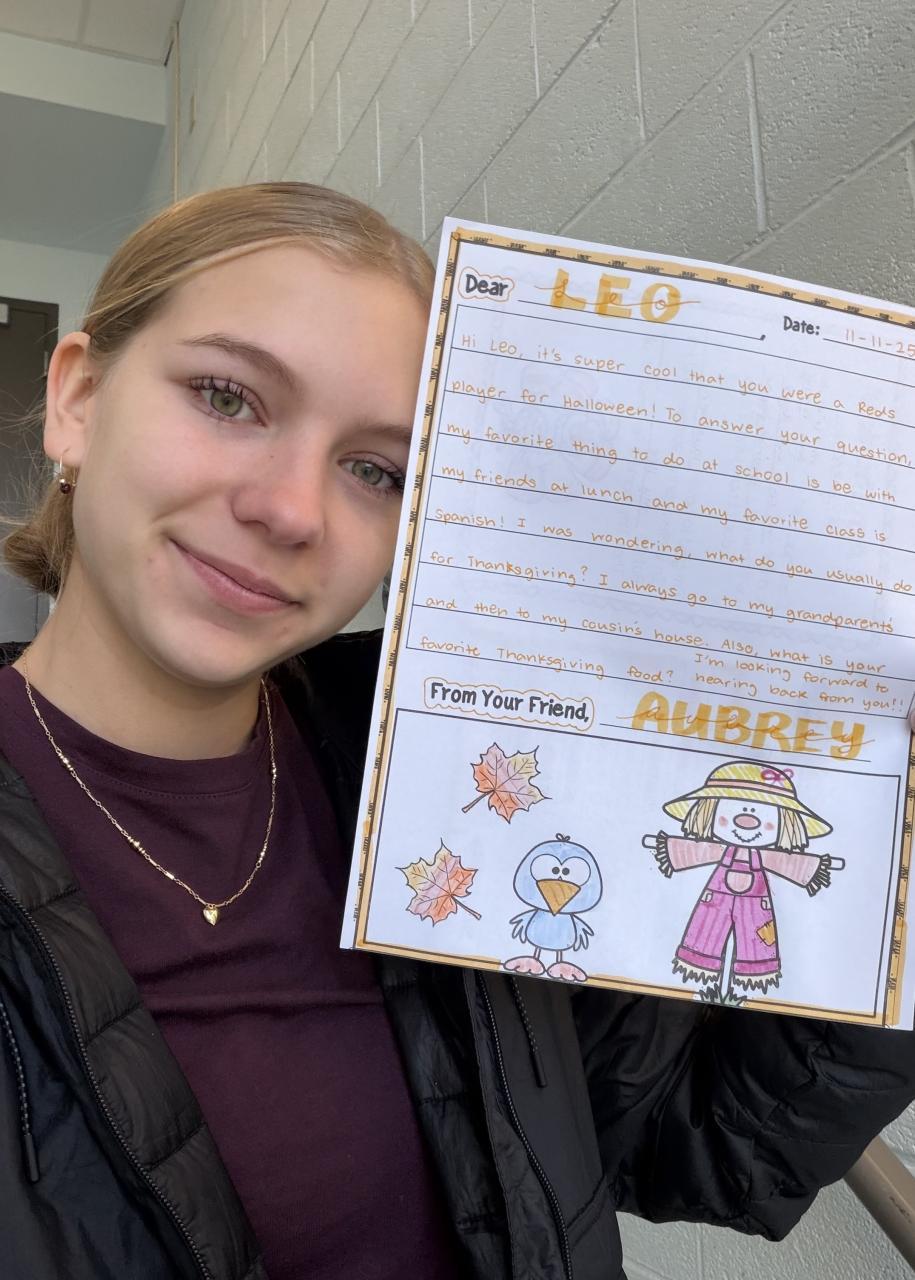 Dear LEO, Date: 11-11-25
Hi Leo, it's super cool that you were a Reds
player for Halloween! To answer your question,
my favorite thing to do at school is be with
my friends at lunch and my favorite class is
Spanish! I was wondering, what do you usually do
for Thanksgiving? I always go to my grandparents
and then to my cousin's house. Also, what is your
favorite Thanksgiving food? I'm looking forward to
hearing back from you!!
From Your Friend, AUBREY